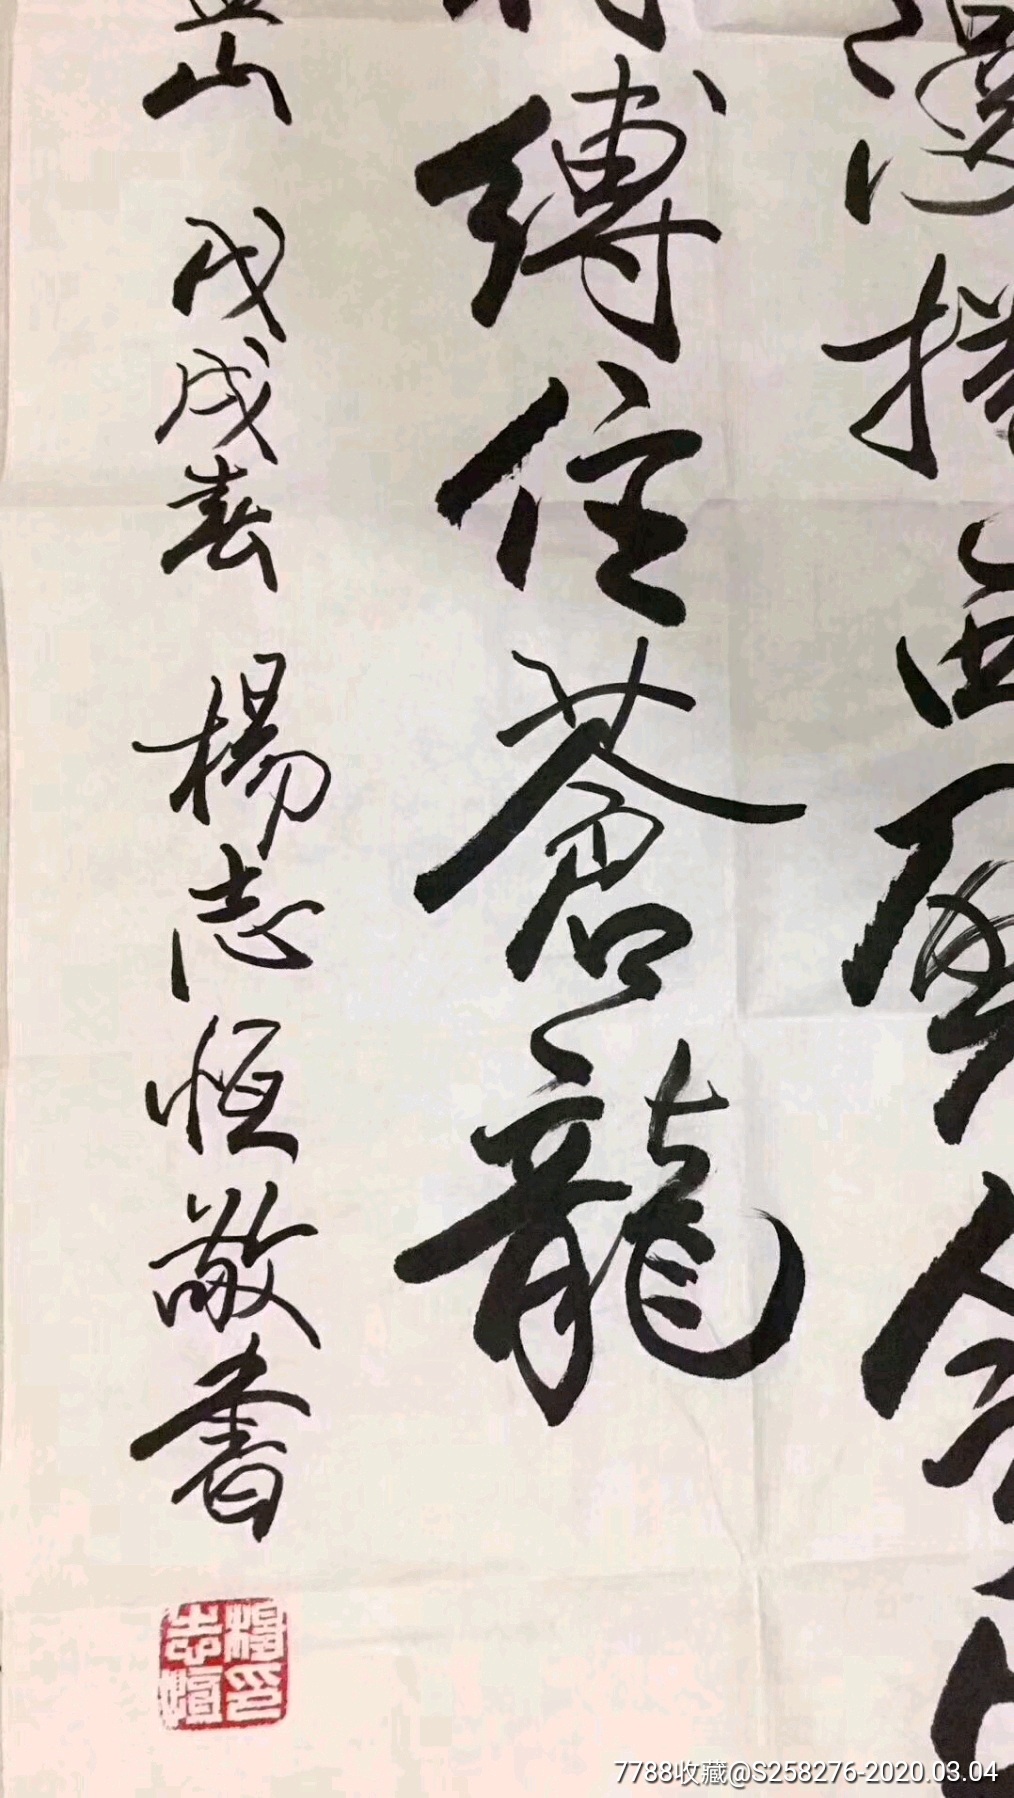 漫捲西風今日
時縛住蒼龍
盤山 戊戌春 楊志恒敬書
楊印志恒
7788收藏@S258276-2020.03.04